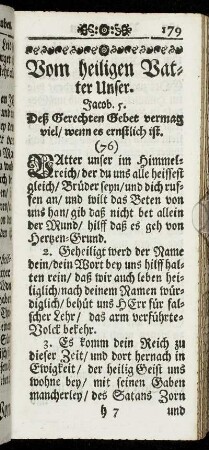 179
Vom heiligen Vat-
ter Unser.
Jacob. 5.
Deß Gerechten Gebet vermag
viel/ wenn es ernstlich ist.
(76)
VAtter unser im Himmel-
reich/ der du uns alle heissest
gleich/ Brüder seyn/ und dich ruf-
fen an/ und wilt das Beten von
uns han/ gib daß nicht bet allein
der Mund/ hilff daß es geh von
Hertzen-Grund.
2. Geheiligt werd der Name
dein/ dein Wort bey uns hilff hal-
ten rein/ daß wir auch leben hei-
liglich/ nach deinem Namen wür-
diglich/ behüt uns HErr für fal-
scher Lehr/ das arm verführte-
Volck bekehr.
3. Es komm dein Reich zu
dieser Zeit/ und dort hernach in
Ewigkeit/ der heilig Geist uns
wohne bey/ mit seinen Gaben
mancherley/ des Satans Zorn
h 7 und